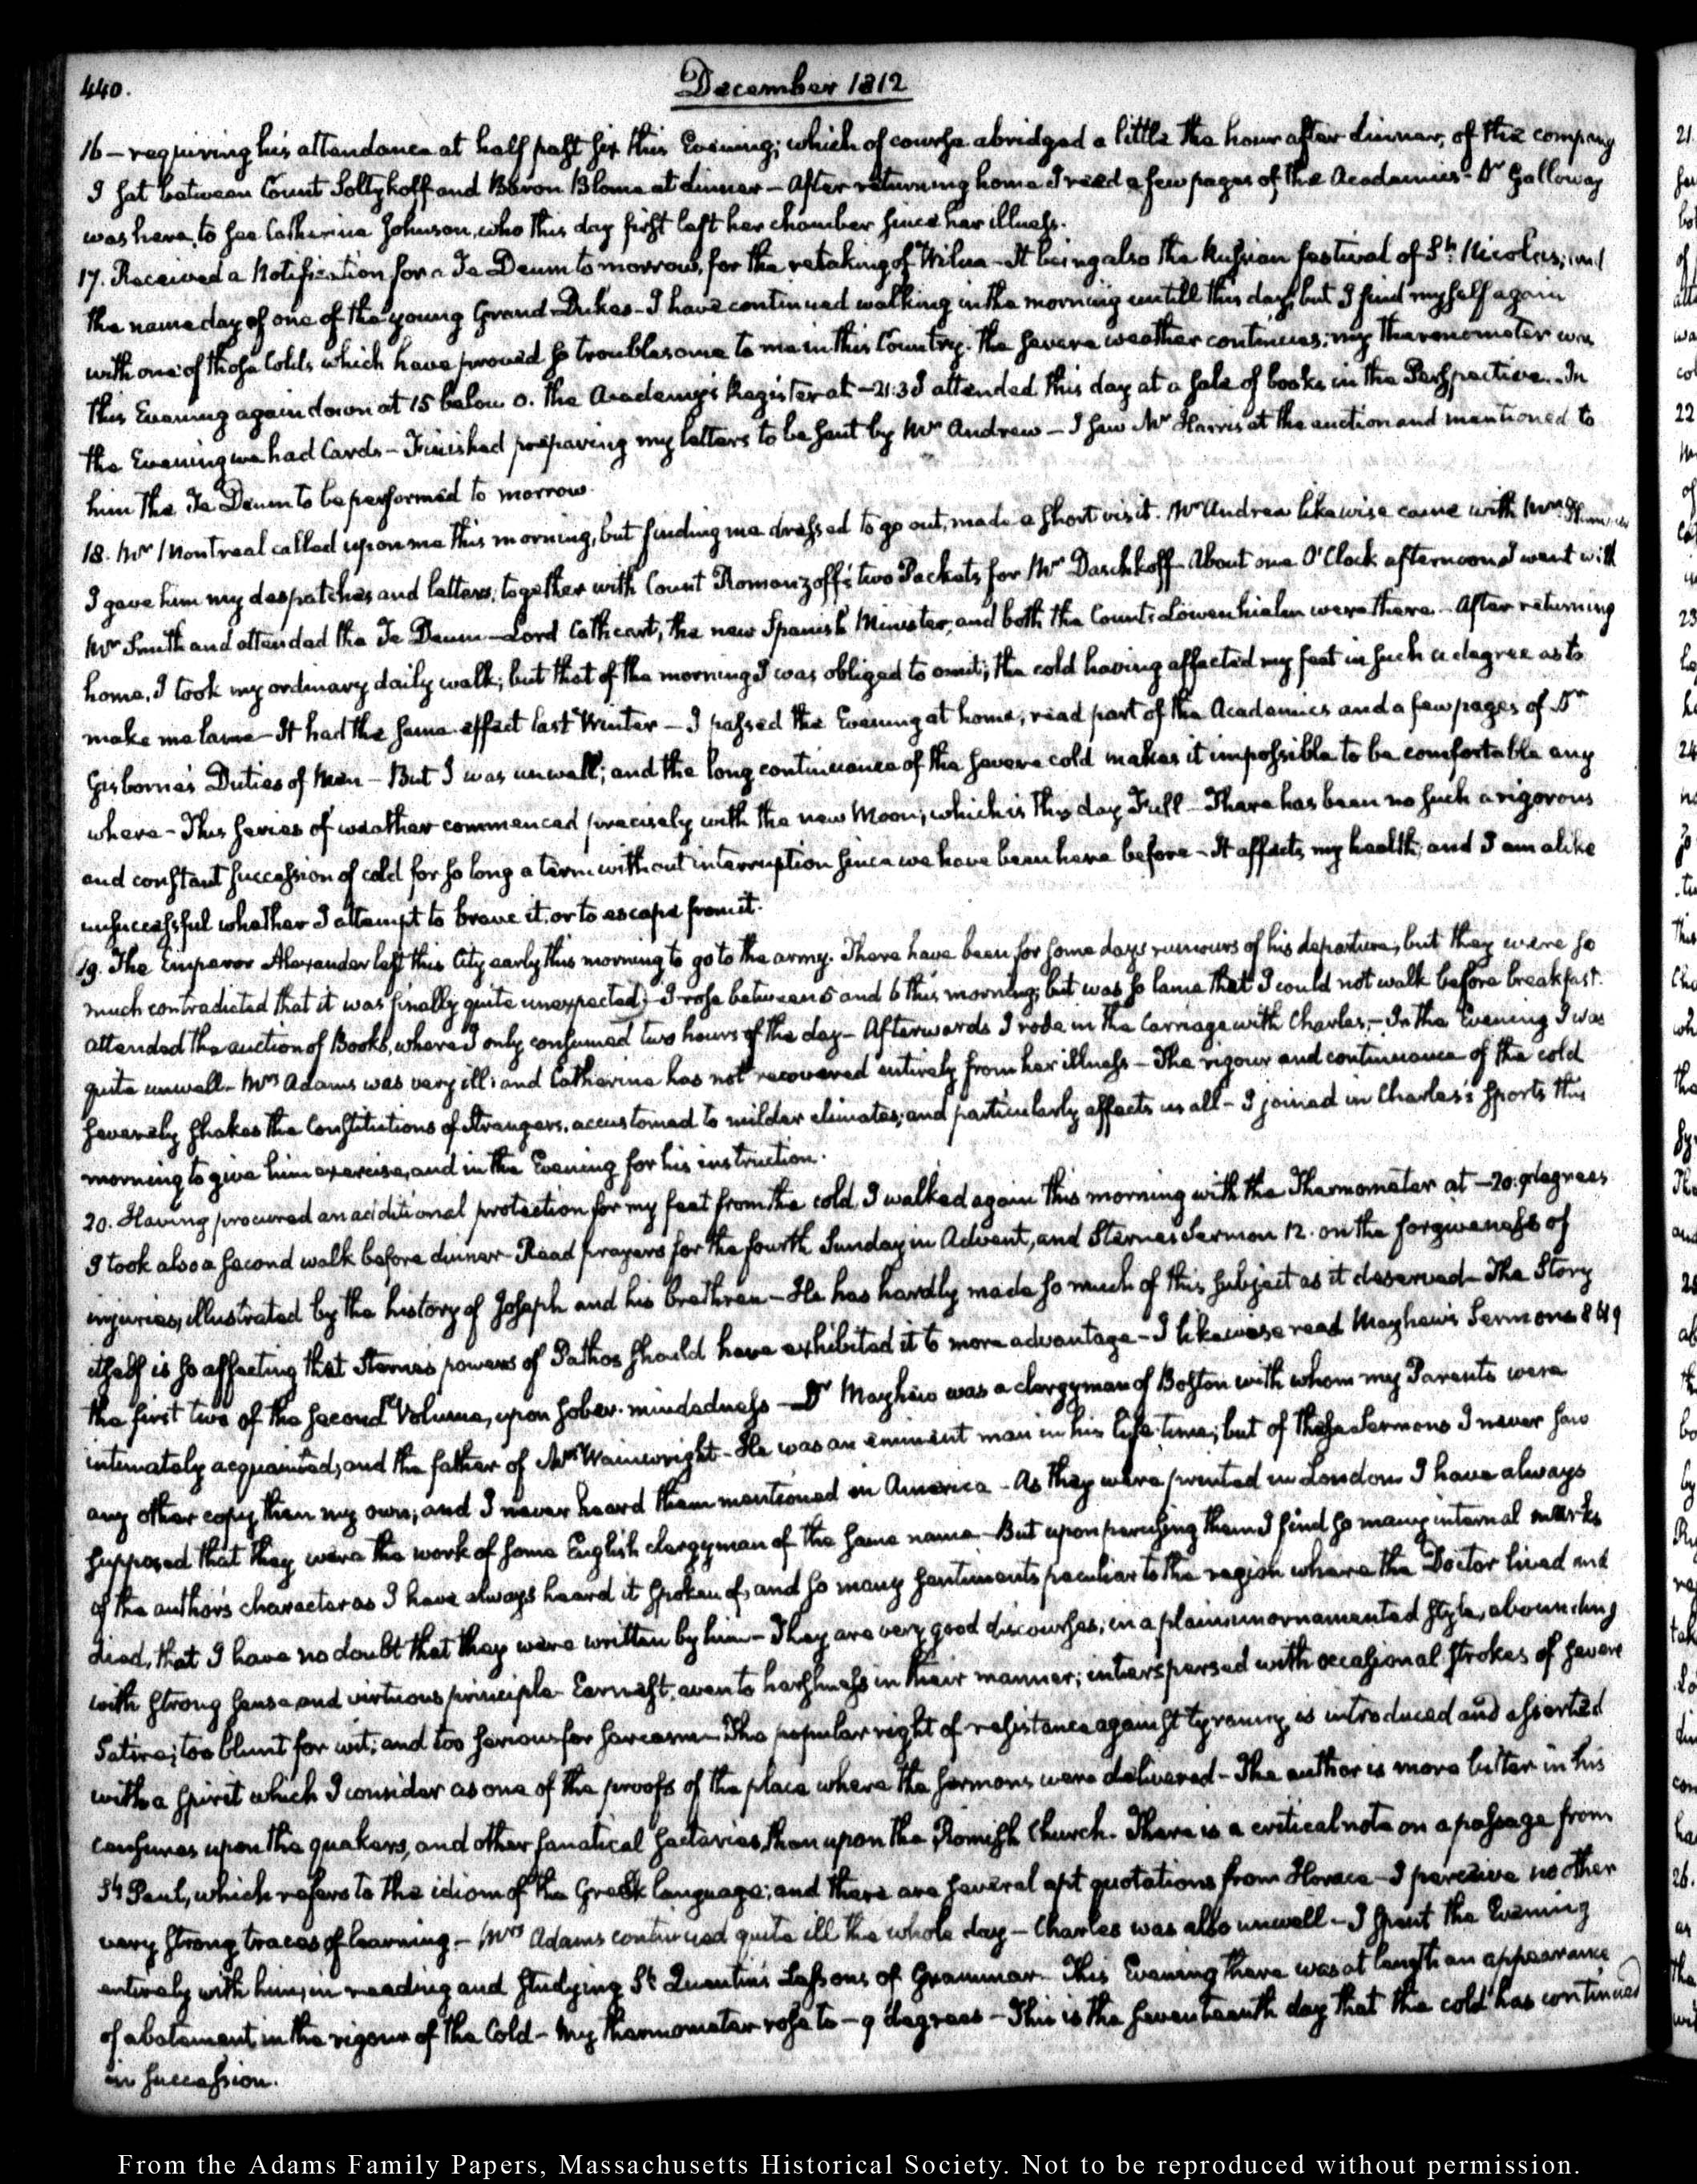 440.
December 1812
16 — requiring his attendance at half past six this Evening; which of course abridged a little the hour after dinner, of the company
I sat between Count Soltykoff and Baron Blome at dinner — After returning home I read a few pages of the Academics — Dr Galloway
was here, to see Catherine Johnson, who this day first left her chamber since her illness.
17. Received a Notification for a Te Deum to morrow, for the retaking of Wilna — It being also the Russian festival of St. Nicolas; and
the name day of one of the young Grand Dukes — I have continued walking in the morning untill this day, but I find myself again
with one of those Colds which have proved so troublesome to me in this Country. The severe weather continues; my thermometer was
this Evening again down at 15 below 0. the Academy's Register at —21.3 I attended this day at a sale of books in the Perspective. In
the Evening we had Cards — Finished preparing my letters to be sent by Mr Andrew — I saw Mr Harris at the auction and mentioned to
him the Te Deum to be performed to morrow.
18. Mr Montreal called upon me this morning, but finding me dressed to go out, made a short visit. Mr Andrew likewise came with Mr
I gave him my despatches and letters, together with Count Romanzoff's two Packets for Mr Daschkoff — About one O'Clock afternoon I went with
Mr Smith and attended the Te Deum — Lord Cathcart, the new Spanish Minister, and both the Counts Löwenhielm were there — After returning
home, I took my ordinary daily walk; but that of the morning I was obliged to omit; the cold having affected my feet in such a degree as to
make me lame — It had the same effect last Winter — I passed the Evening at home; read part of the Academics and a few pages of Dr
Gisborne's Duties of Men — But I was unwell; and the long continuance of the severe cold makes it impossible to be comfortable any
where — This series of weather commenced precisely with the new Moon; which is this day Full — There has been no such a rigorous
and constant succession of cold for so long a term without interruption since we have been here before — It affects my health, and I am alike
unsuccessful whether I attempt to brave it, or to escape from it.
19. The Emperor Alexander left this City early this morning to go to the army. There have been for some days rumours of his departure, but they were so
much contradicted that it was finally quite unexpected — I rose between 5 and 6 this morning; but was so lame that I could not walk before breakfast.
attended the auction of Books, where I only consumed two hours of the day — Afterwards I rode in the Carriage with Charles, — In the Evening I was
quite unwell — Mrs Adams was very ill; and Catherine has not recovered entirely from her illness — The rigour and continuance of the cold
severely shakes the Constitutions of Strangers, accustomed to milder climates; and particularly affects us all — I joined in Charles's sports this
morning to give him exercise, and in the Evening for his instruction.
20. Having procured an additional protection for my feet from the cold, I walked again this morning with the Thermometer at —20. degrees
I took also a second walk before dinner — Read prayers for the fourth Sunday in Advent, and Sterne's Sermon 12. on the forgiveness of
injuries, illustrated by the history of Joseph and his brethren — He has hardly made so much of this subject as it deserved — The Story
itself is so affecting that Sterne's powers of Pathos should have exhibited it to more advantage — I likewise read Mayhew's Sermons 8 & 9
the first two of the second Volume, upon sober-mindedness — Dr Mayhew was a clergyman of Boston with whom my Parents were
intimately acquainted, and the father of Mrs Wainwright — He was an eminent man in his life-time; but of these Sermons I never saw
any other copy than my own; and I never heard them mentioned in America — As they were printed in London I have always
supposed that they were the work of some English clergyman of the same name — But upon perusing them I find so many internal marks
of the author's character as I have always heard it spoken of, and so many sentiments peculiar to the region where the Doctor lived and
died, that I have no doubt that they were written by him — They are very good discourses, in a plain unornamented style, abounding
with strong sense and virtuous principle — Earnest, even to harshness in their manner; interspersed with occasional strokes of severe
Satire; too blunt for wit; and too serious for sarcasm — The popular right of resistance against tyranny is introduced and asserted
with a spirit which I consider as one of the proofs of the place where the sermons were delivered — The author is more bitter in his
censures upon the quakers, and other fanatical sectaries, than upon the Romish Church. There is a critical note on a passage from
St Paul, which refers to the idiom of the Greek language; and there are several apt quotations from Horace — I perceive no other
very strong traces of learning. — Mrs Adams continued quite ill the whole day — Charles was also unwell — I spent the Evening
entirely with him, in reading and studying St Quentin's Lessons of Grammar — This Evening there was at length an appearance
of abatement in the rigour of the Cold — My thermometer rose to — 9 degrees — This is the seventeenth day that the cold has continued
in succession.
From the Adams Family Papers, Massachusetts Historical Society. Not to be reproduced without permission.